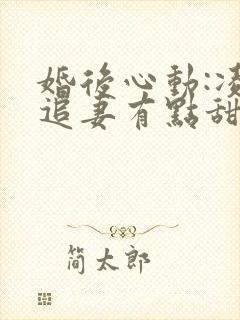 婚後心動:凌
追妻有點甜
简太郎